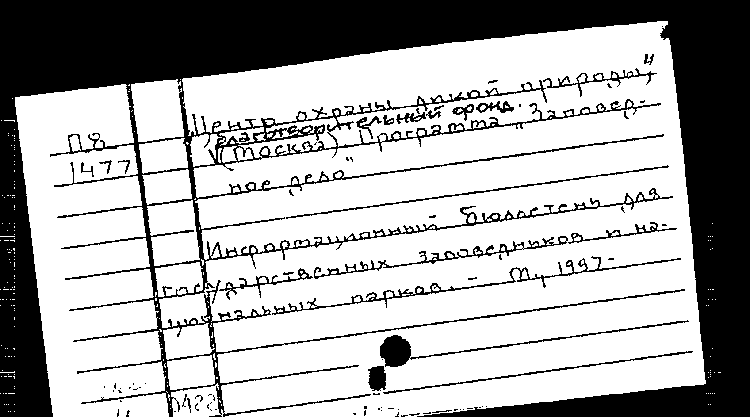 П8
1477
Центр охраны дикой природы",
благотворительный фонд.
(Москва) Программа „Заповед-
ное дело"
Информационный бюллетень для
государственных заповедников и на-
циональных парков. – М., 1997-
0422